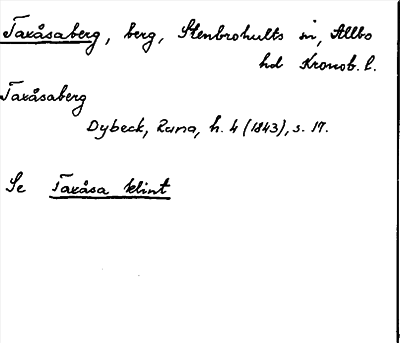 Taxåsaberg, berg, Stenbrohults sn, Allbo
hd Kronob. l.
Taxåsaberg
Dybeck, Runa, h. 4 (1843), s. 17.
Se Taxåsa klint